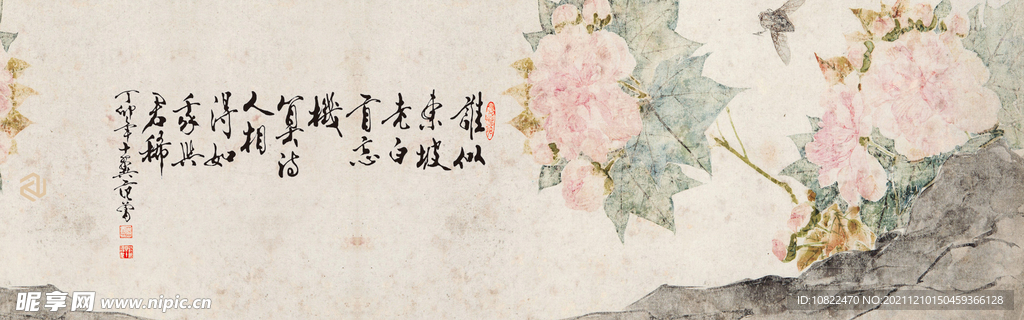 誰似
東坡
老白
首忘
機
算詩
人相
得如
我與
君稀
丁卯年十翼范曾
昵享网 www.nipic.cn
ID:10822470 NO:20211210150459366128